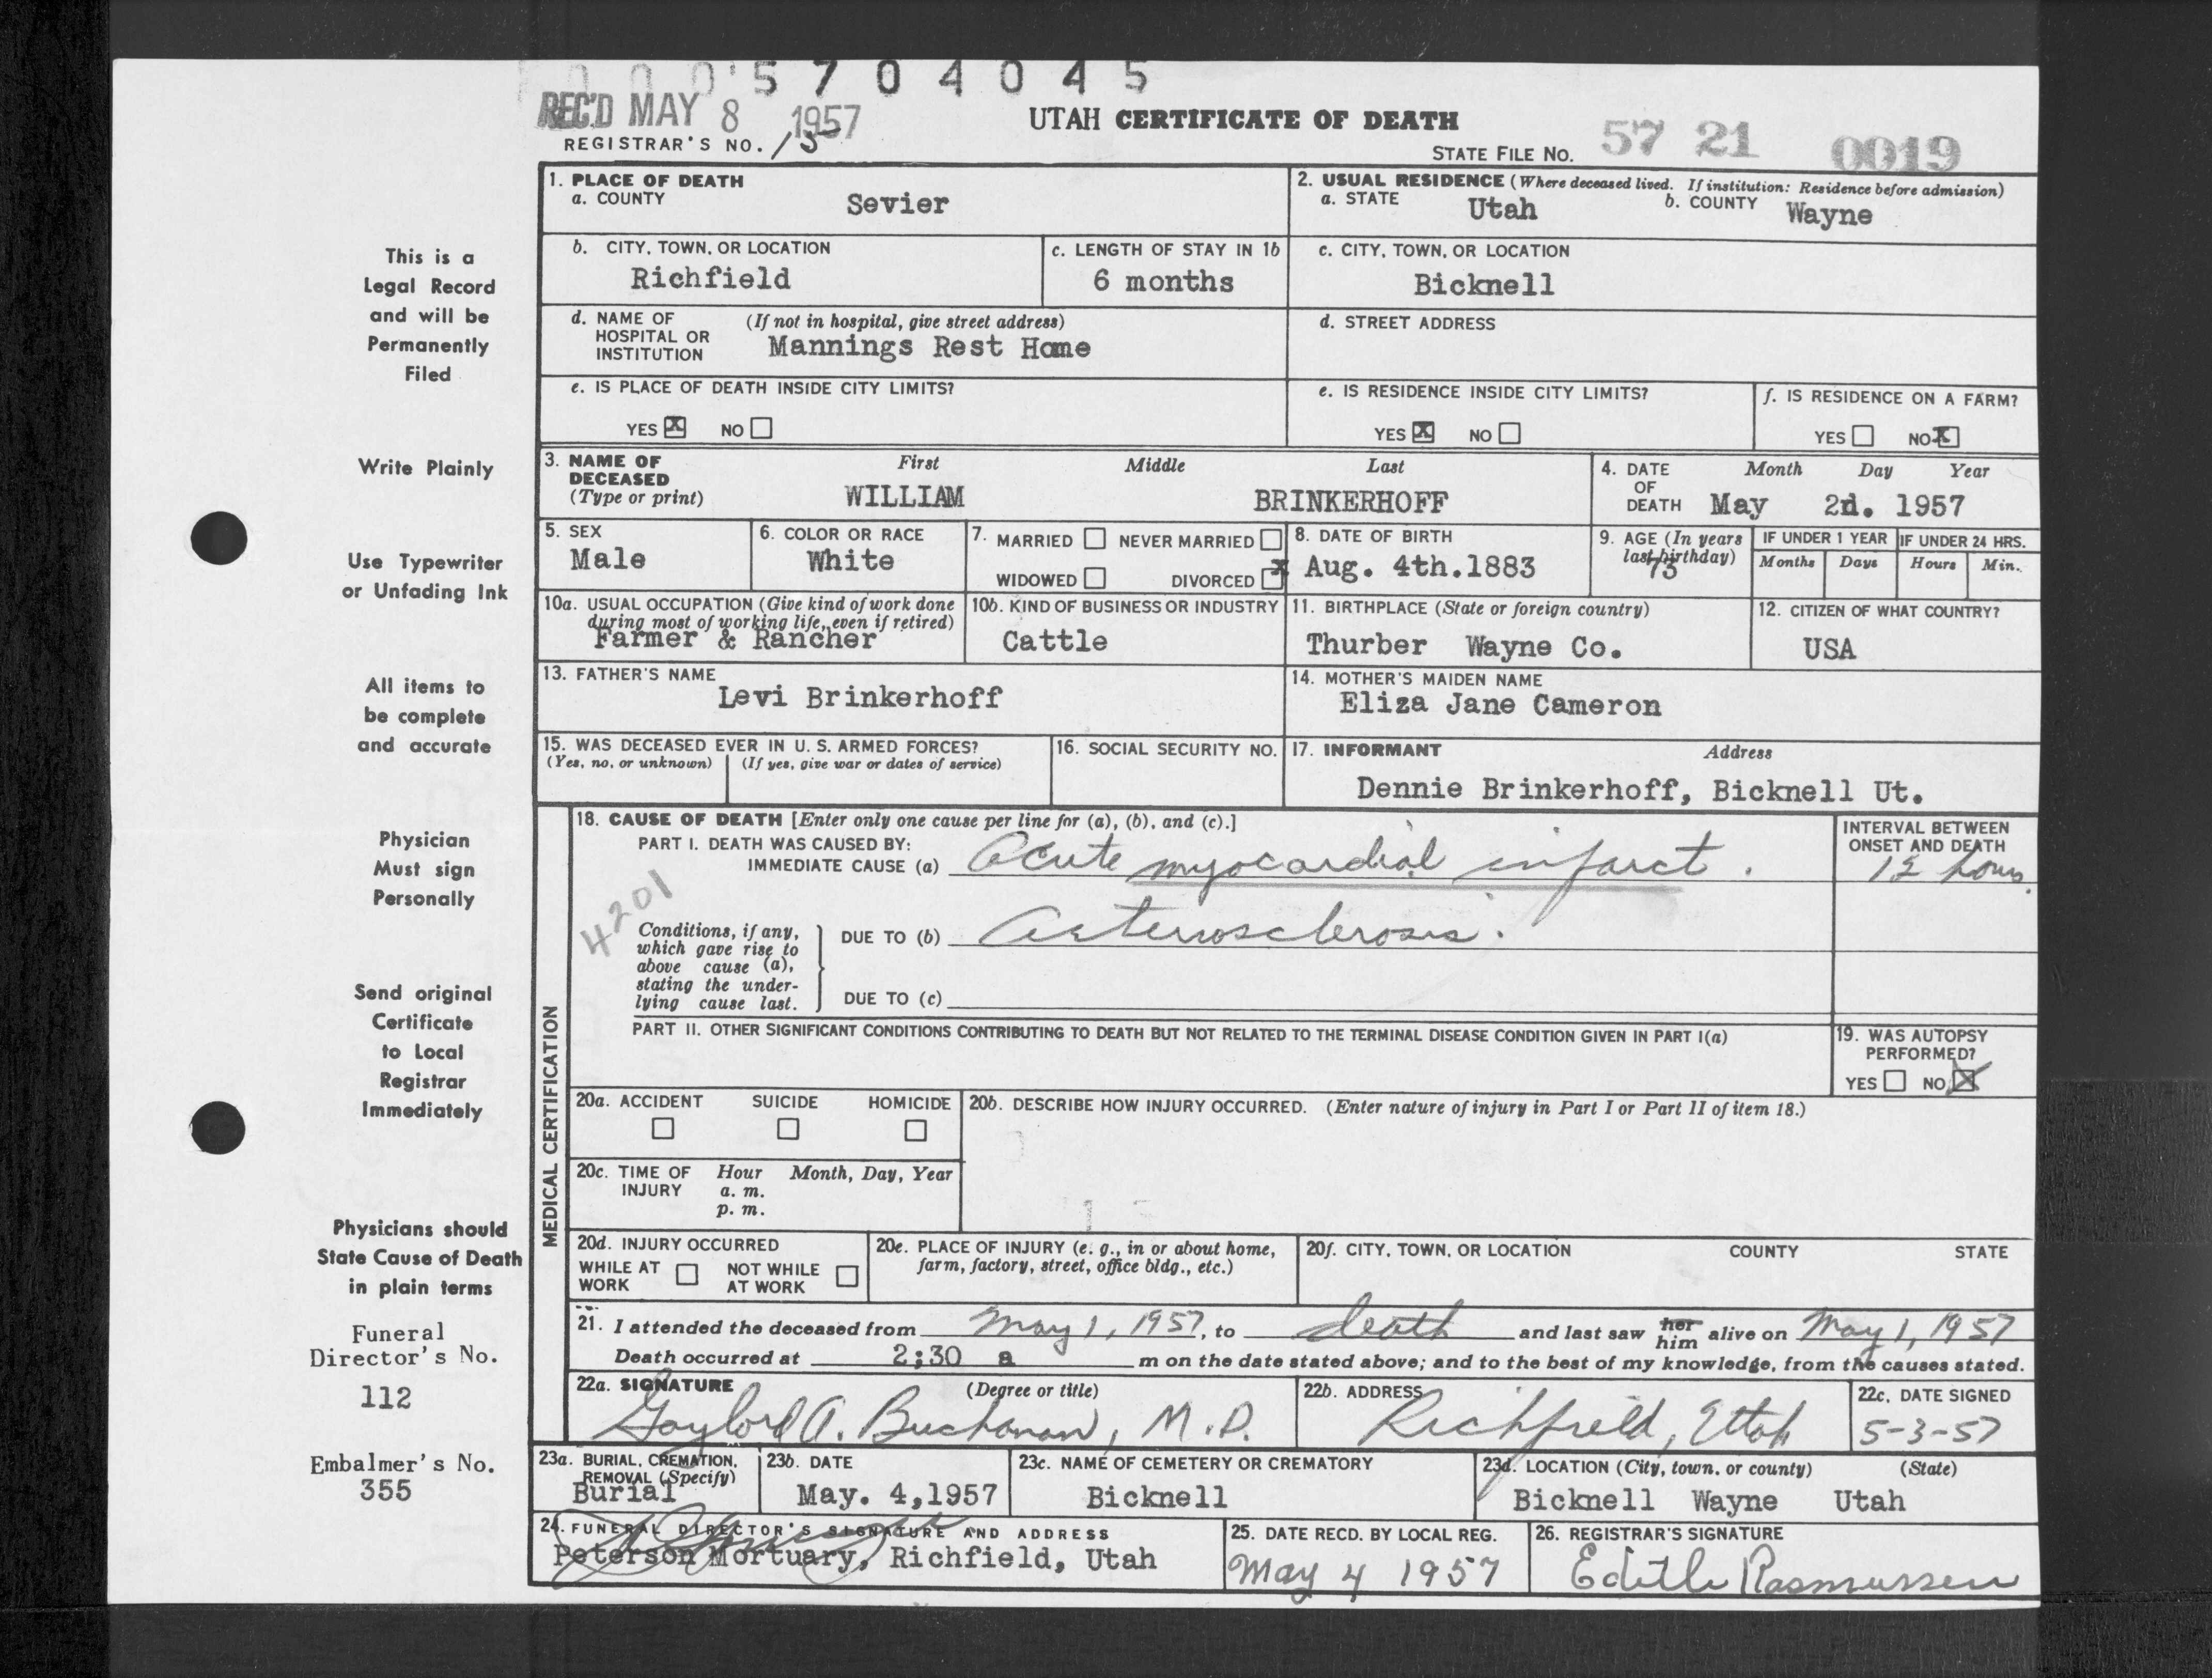 0 0 0 5 7 0 4 0 4 5
REC'D MAY 8 1957
REGISTRAR'S NO. 15
UTAH CERTIFICATE OF DEATH
STATE FILE NO. 57 21 0019
This is a
Legal Record
and will be
Permanently
Filed
Write Plainly
Use Typewriter
or Unfading Ink
All items to
be complete
and accurate
Physician
Must sign
Personally
Send original
Certificate
to Local
Registrar
Immediately
Physicians should
State Cause of Death
in plain terms
Funeral
Director's No.
112
Embalmer's No.
355
1. PLACE OF DEATH
a. COUNTY Sevier
2. USUAL RESIDENCE (Where deceased lived. If institution: Residence before admission)
a. STATE Utah b. COUNTY Wayne
b. CITY, TOWN, OR LOCATION
Richfield
c. LENGTH OF STAY IN 1b
6 months
c. CITY, TOWN, OR LOCATION
Bicknell
d. NAME OF HOSPITAL OR INSTITUTION (If not in hospital, give street address)
Mannings Rest Home
d. STREET ADDRESS
e. IS PLACE OF DEATH INSIDE CITY LIMITS?
YES X NO
e. IS RESIDENCE INSIDE CITY LIMITS?
YES X NO
f. IS RESIDENCE ON A FARM?
YES NO X
3. NAME OF DECEASED (Type or print)
First Middle Last
WILLIAM BRINKERHOFF
4. DATE OF DEATH Month Day Year
May 2d. 1957
5. SEX
Male
6. COLOR OR RACE
White
7. MARRIED NEVER MARRIED
WIDOWED DIVORCED X
8. DATE OF BIRTH
Aug. 4th.1883
9. AGE (In years last birthday)
73
IF UNDER 1 YEAR IF UNDER 24 HRS.
Months Days Hours Min.
10a. USUAL OCCUPATION (Give kind of work done during most of working life, even if retired)
Farmer & Rancher
10b. KIND OF BUSINESS OR INDUSTRY
Cattle
11. BIRTHPLACE (State or foreign country)
Thurber Wayne Co.
12. CITIZEN OF WHAT COUNTRY?
USA
13. FATHER'S NAME
Levi Brinkerhoff
14. MOTHER'S MAIDEN NAME
Eliza Jane Cameron
15. WAS DECEASED EVER IN U. S. ARMED FORCES?
(Yes, no, or unknown) (If yes, give war or dates of service)
16. SOCIAL SECURITY NO.
17. INFORMANT Address
Dennie Brinkerhoff, Bicknell Ut.
MEDICAL CERTIFICATION
18. CAUSE OF DEATH [Enter only one cause per line for (a), (b), and (c).]
PART I. DEATH WAS CAUSED BY:
IMMEDIATE CAUSE (a) Acute myocardial infarct.
INTERVAL BETWEEN ONSET AND DEATH
12 hours
4201
Conditions, if any,
which gave rise to
above cause (a),
stating the under-
lying cause last.
DUE TO (b) Arteriosclerosis.
DUE TO (c)
PART II. OTHER SIGNIFICANT CONDITIONS CONTRIBUTING TO DEATH BUT NOT RELATED TO THE TERMINAL DISEASE CONDITION GIVEN IN PART I(a)
19. WAS AUTOPSY PERFORMED?
YES NO X
20a. ACCIDENT SUICIDE HOMICIDE
20b. DESCRIBE HOW INJURY OCCURRED. (Enter nature of injury in Part I or Part II of item 18.)
20c. TIME OF INJURY Hour Month, Day, Year
a. m.
p. m.
20d. INJURY OCCURRED
WHILE AT WORK NOT WHILE AT WORK
20e. PLACE OF INJURY (e. g., in or about home, farm, factory, street, office bldg., etc.)
20f. CITY, TOWN, OR LOCATION COUNTY STATE
21. I attended the deceased from May 1, 1957, to death and last saw her him alive on May 1, 1957
Death occurred at 2:30 a m on the date stated above; and to the best of my knowledge, from the causes stated.
22a. SIGNATURE (Degree or title)
Gaylord A. Buchanan, M.D.
22b. ADDRESS
Richfield, Utah
22c. DATE SIGNED
5-3-57
23a. BURIAL, CREMATION, REMOVAL (Specify)
Burial
23b. DATE
May. 4,1957
23c. NAME OF CEMETERY OR CREMATORY
Bicknell
23d. LOCATION (City, town, or county) (State)
Bicknell Wayne Utah
24. FUNERAL DIRECTOR'S SIGNATURE AND ADDRESS
Peterson Mortuary, Richfield, Utah
25. DATE RECD. BY LOCAL REG.
May 4 1957
26. REGISTRAR'S SIGNATURE
Edith Rasmussen